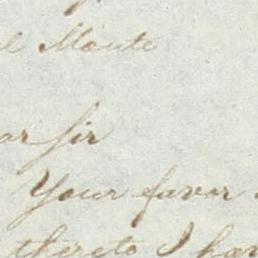 el Monte
ar Sir
Your favor
thereto I hav